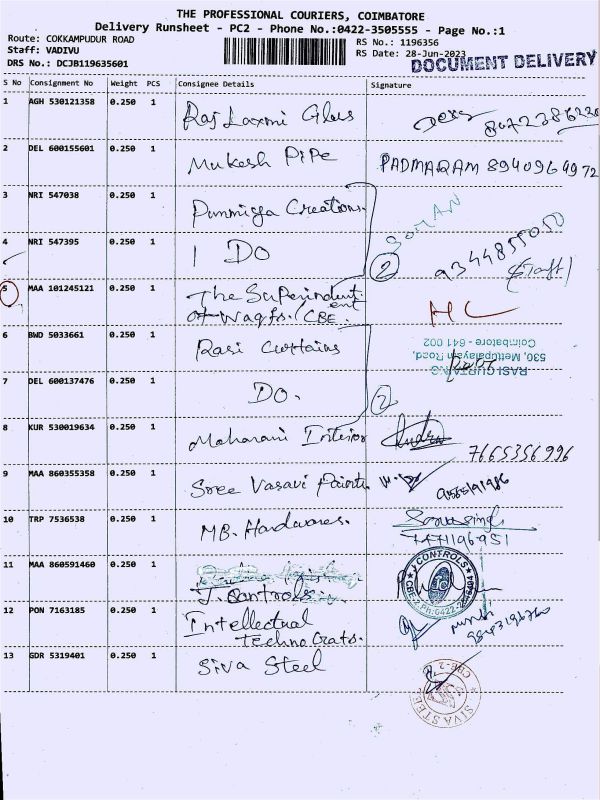 THE PROFESSIONAL COURIERS, COIMBATORE
Delivery Runsheet - PC2 - Phone No.:0422-3505555 - Page No.:1
Route: COKKAMPUDUR ROAD
RS No.: 1196356
Staff: VADIVU
RS Date: 28-Jun-2023
DOCUMENT DELIVERY
DRS No.: DCJB119635601
S No Consignment No Weight PCS Consignee Details Signature
1 AGH 530121358 0.250 1 Raj Laxmi Glass
2 DEL 600155601 0.250 1 Mukesh PiPe PADMARAM 8940964972
3 NRI 547038 0.250 1 Creations.
4 NRI 547395 0.250 1 DO 2 9344855050
(Staff)
5 MAA 101245121 0.250 1 The Superindent
of Waqfs. CBE. HC
6 BWD 5033661 0.250 1 Rasi Curtains
RASI CURTAINS
530, Mettupalayam Road,
Coimbatore - 641 002
7 DEL 600137476 0.250 1 DO. 2
8 KUR 530019634 0.250 1 Maharani Interior 7665356996
9 MAA 860355358 0.250 1 Sree Vasavi Paints.
10 TRP 7536538 0.250 1 MB. Hardwares.
7471196951
11 MAA 860591460 0.250 1
J. Controls
J CONTROLS
12 PON 7163185 0.250 1 Intellectual
techno Crats.
13 GDR 5319401 0.250 1 Siva Steel
SIVA STEEL CBE-2